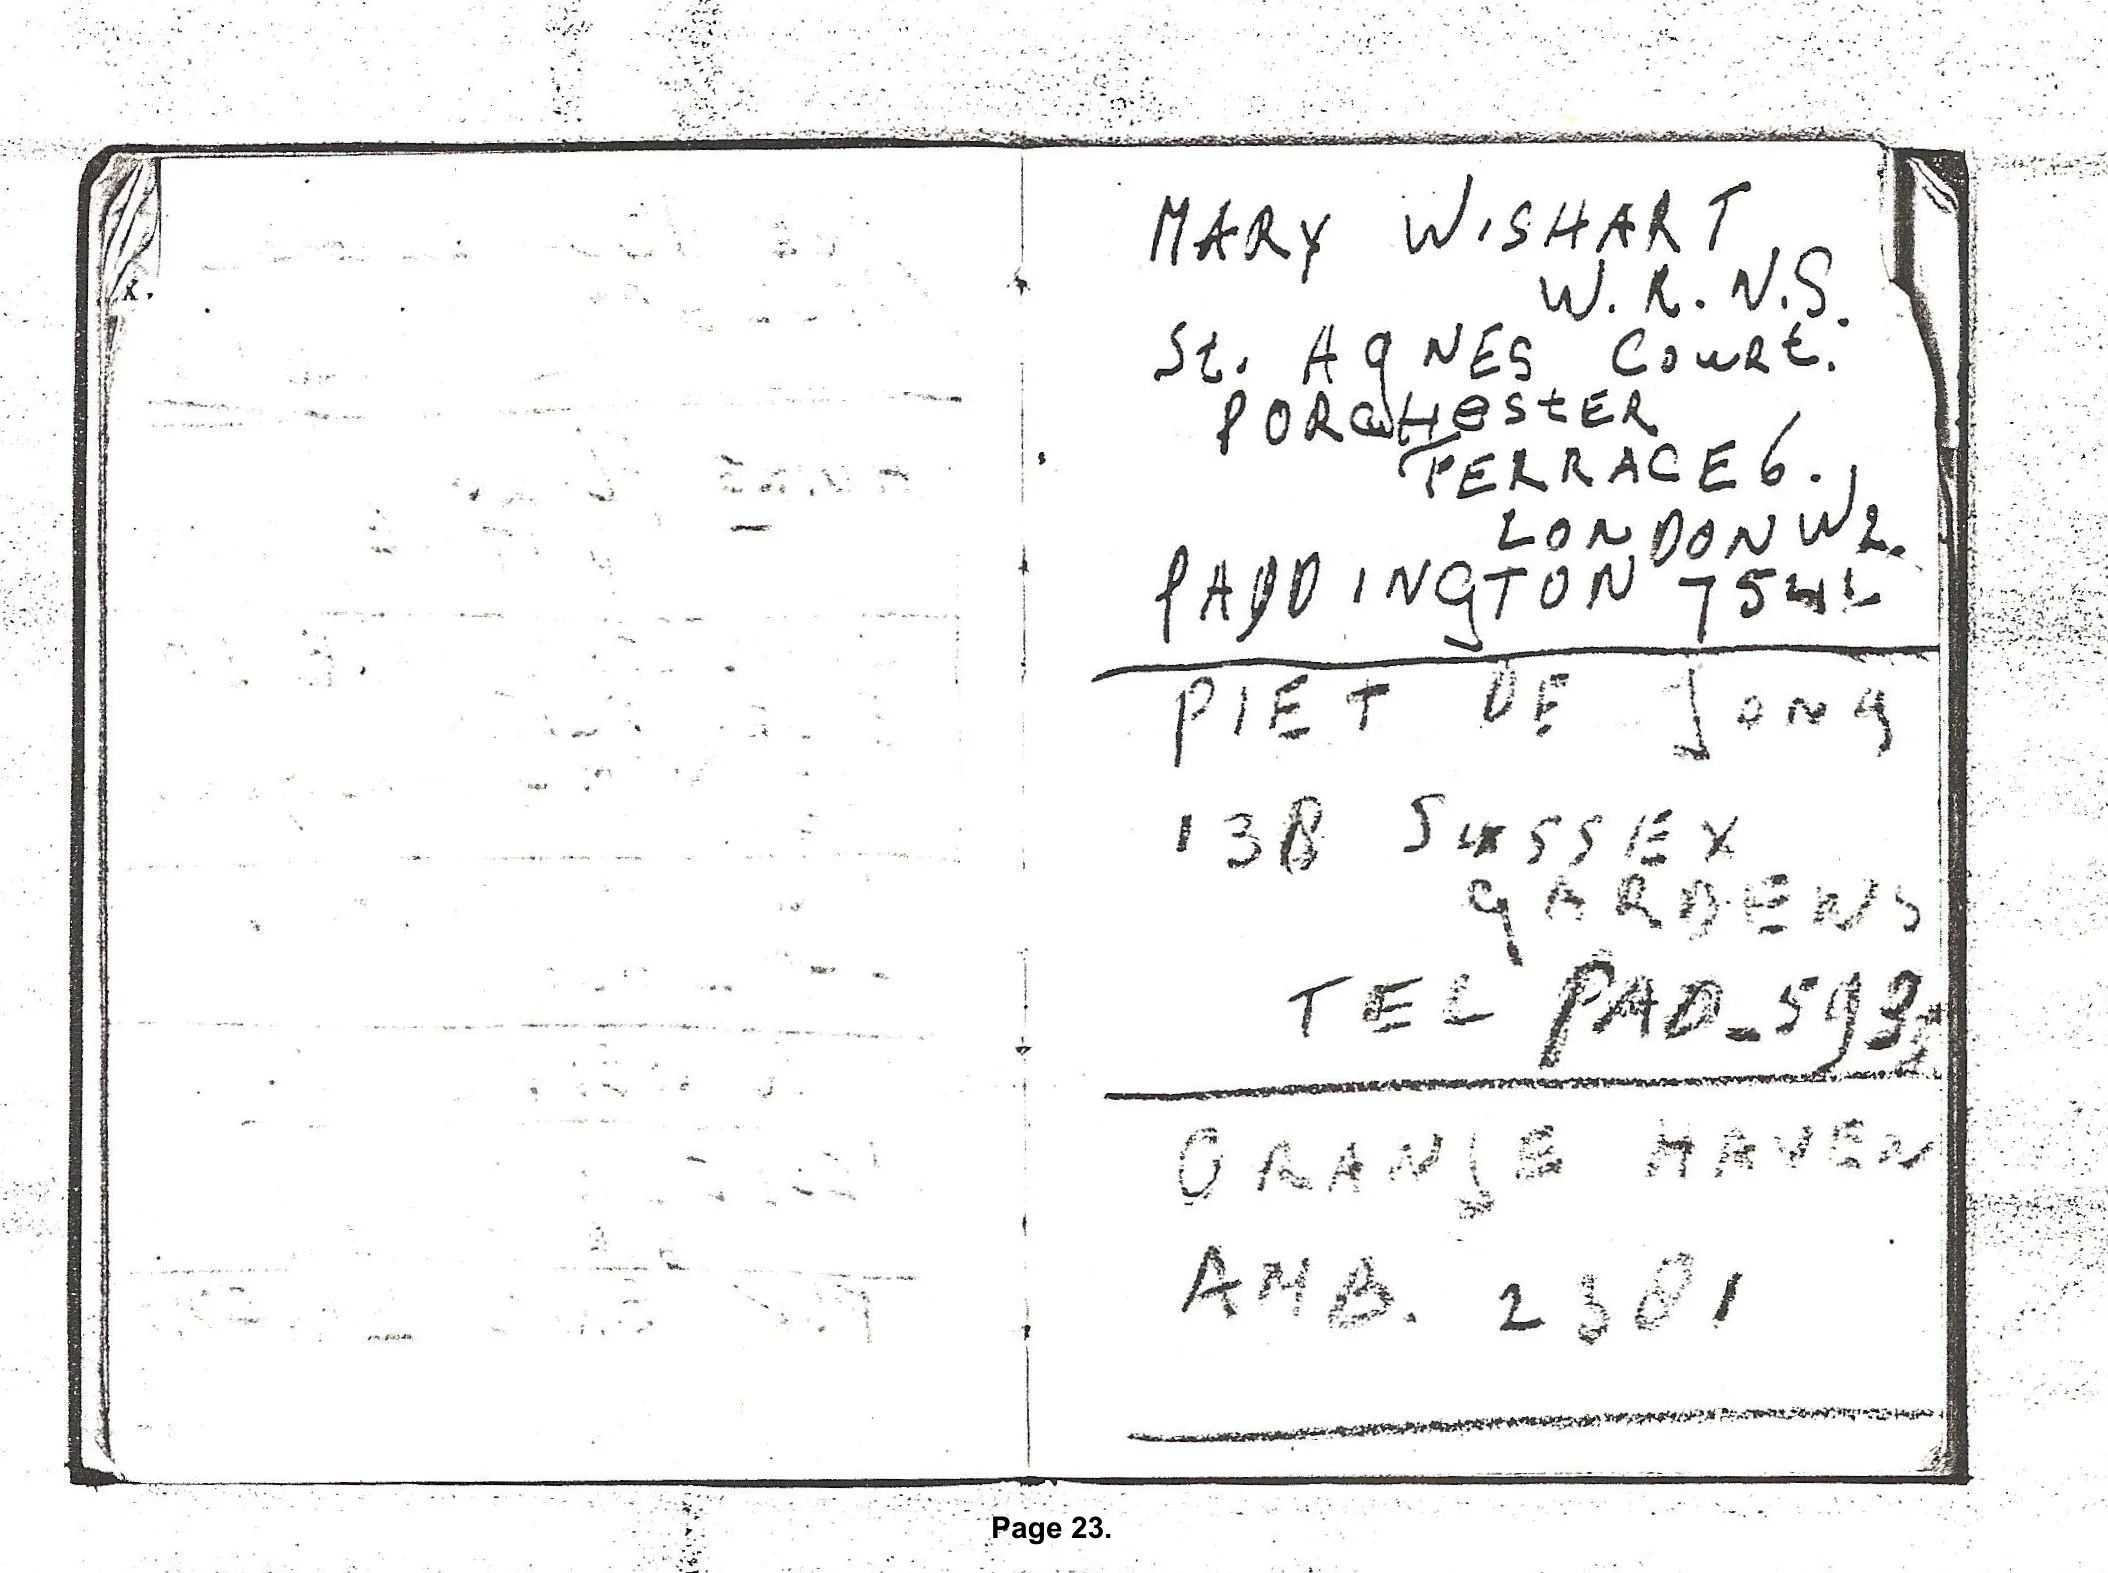 x.
MARY WISHART
W.R.N.S.
St. AgNES COURt.
PORCHeStER
TERRACE 6.
LONDON W2.
PADDINgTON 754L
PIET DE JONg
138 SUSSEX
gARDENS
TEL PAD_
ORANJE HAVEN
AMB. 2301
Page 23.